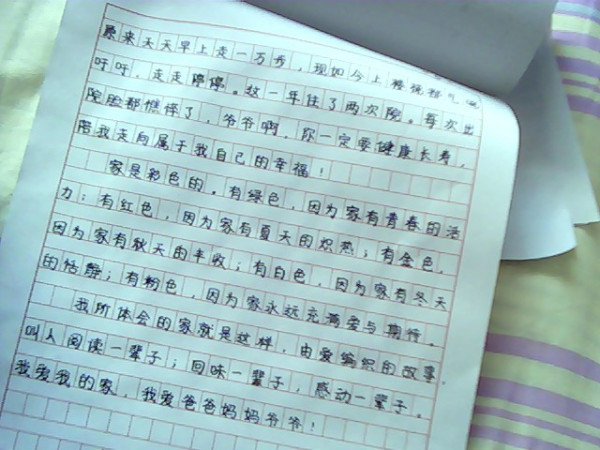 原来天天早上走一万步,现如今上楼梯都气喘
吁吁,走走停停。这一年住了两次院。每次出
院脸都憔悴了,爷爷啊,你一定要健康长寿,
陪我走向属于我自己的幸福!
家是彩色的。有绿色,因为家有青春的活
力;有红色,因为家有夏天的炽热;有金色,
因为家有秋天的丰收;有白色,因为家有冬天
的恬静;有粉色,因为家永远充满爱与期待。
我所体会的家就是这样,由爱编织的故事,
叫人阅读一辈子;回味一辈子,感动一辈子。
我爱我的家,我爱爸爸妈妈爷爷!